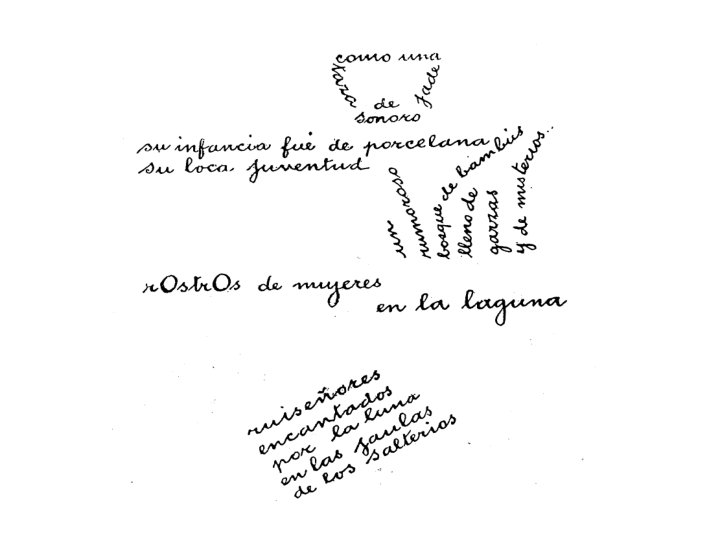 como una
taza
de
sonoro
jade
su infancia fué de porcelana
su loca juventud
un
rumoroso
bosque de bambús
lleno de
garzas
y de misterios..
rOstrOs de mujeres
en la laguna
ruiseñores
encantados
por la luna
en las jaulas
de los salterios